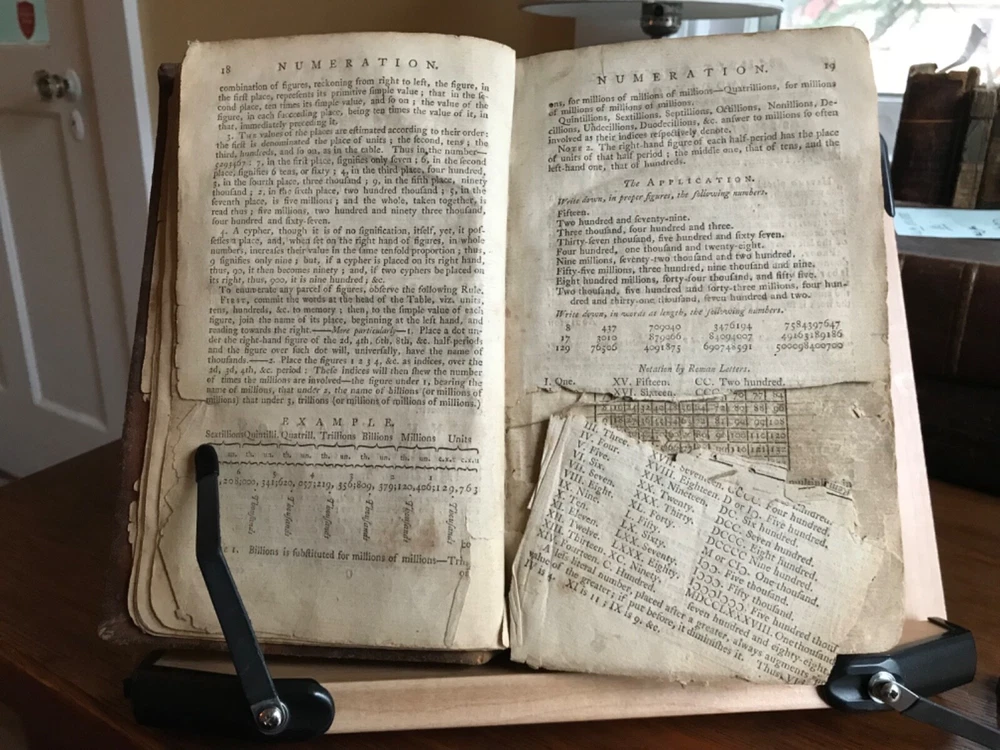 18 NUMERATION.
combination of figures, reckoning from right to left, the figure, in
the first place, represents its primitive simple value; that in the se-
cond place, ten times its simple value, and so on; the value of the
figure, in each succeeding place, being ten times the value of it, in
that, immediately preceding it.
3. The values of the places are estimated according to their order:
the first is denominated the place of units; the second, tens; the
third, hundreds, and so on, as in the table. Thus in the number—
5293467: 7, in the first place, signifies only seven; 6, in the second
place, signifies 6 tens, or sixty; 4, in the third place, four hundred,
3, in the fourth place, three thousand; 9, in the fifth place, ninety
thousand; 2, in the sixth place, two hundred thousand; 5, in the
seventh place, is five millions; and the whole, taken together, is
read thus; five millions, two hundred and ninety three thousand,
four hundred and sixty-seven.
4. A cypher, though it is of no signification, itself, yet, it pos-
sesses a place, and, when set on the right hand of figures, in whole
numbers, increases their value in the same tenfold proportion; thus,
9 signifies only nine; but, if a cypher is placed on its right hand,
thus, 90, it then becomes ninety; and, if two cyphers be placed on
its right, thus, 900, it is nine hundred; &c.
To enumerate any parcel of figures, observe the following Rule.
FIRST, commit the words at the head of the Table, viz. units,
tens, hundreds, &c. to memory; then, to the simple value of each
figure, join the name of its place, beginning at the left hand, and
reading towards the right.——More particularly—1. Place a dot un-
der the right-hand figure of the 2d, 4th, 6th, 8th, &c. half-period;
and the figure over such dot will, universally, have the name of
thousands.——2. Place the figures 1 2 3 4, &c. as indices, over the
2d, 3d, 4th, &c. period: These indices will then shew the number
of times the millions are involved—the figure under 1, bearing the
name of millions, that under 2, the name of billions (or millions of
millions) that under 3, trillions (or millions of millions of millions.)
EXAMPLE.
Sextillions Quintilli. Quatrill. Trillions Billions Millions Units
un. th. un. th. un. th. un. th. un. th. un. c.x.t. c.x.u
6 4 3 2 1
208;000, 341;620, 057;219, 356;809, 379;120, 406;129,763
Thousands Thousands Thousands Thousands Thousands
1. Billions is substituted for millions of millions—Tril-
NUMERATION. 19
ons, for millions of millions of millions—Quatrillions, for millions
of millions of millions of millions.
Quintillions, Sextillions, Septillions, Octillions, Nonillions, De-
cillions, Undecillions, Duodecillions, &c. answer to millions so often
involved as their indices respectively denote.
NOTE 2. The right-hand figure of each half-period has the place
of units of that half period; the middle one, that of tens, and the
left-hand one, that of hundreds.
The APPLICATION.
Write down, in proper figures, the following numbers.
Fifteen.
Two hundred and seventy-nine.
Three thousand, four hundred and three.
Thirty-seven thousand, five hundred and sixty seven.
Four hundred, one thousand and twenty-eight.
Nine millions, seventy-two thousand and two hundred.
Fifty-five millions, three hundred, nine thousand and nine.
Eight hundred millions, forty-four thousand, and fifty five.
Two thousand, five hundred and forty-three millions, four hun-
dred and thirty-one thousand, seven hundred and two.
Write down, in words at length, the following numbers.
8 437 709040 3476194 7584397647
17 3010 879066 84094007 49163189186
129 76506 4091875 690748591 500098400700
Notation by Roman Letters.
I. One. XV. Fifteen. CC. Two hundred.
XVI. Sixteen.
III. Three.
IV. Four. Seventeen.
V. Five. XVIII. Eighteen. Four hundred.
VI. Six. XIX. Nineteen. D or IƆ. Five hundred.
VII. Seven. XX. Twenty. DC. Six hundred.
VIII. Eight. XXX. Thirty. DCC. Seven hundred.
IX. Nine. XL. Forty. DCCC. Eight hundred.
X. Ten. L. Fifty. DCCCC. Nine hundred.
XI. Eleven. LX. Sixty. M or CIƆ. One thousand.
XII. Twelve. LXX. Seventy. IƆƆ. Five thousand.
XIII. Thirteen. LXXX. Eighty. Fifty thousand.
XIV. Fourteen. XC. Ninety. Five hundred thous
C. Hundred. MDCCLXXXVIII. One thousand
seven hundred and eighty-eight
A less literal number, placed after a greater, always augments
value of the greater; if put before, it diminishes it. Thus VI
IV is 4. XI is 11; IX is 9, &c.